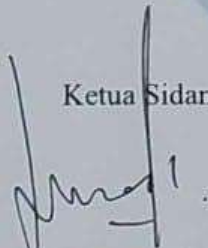 Ketua Sidan